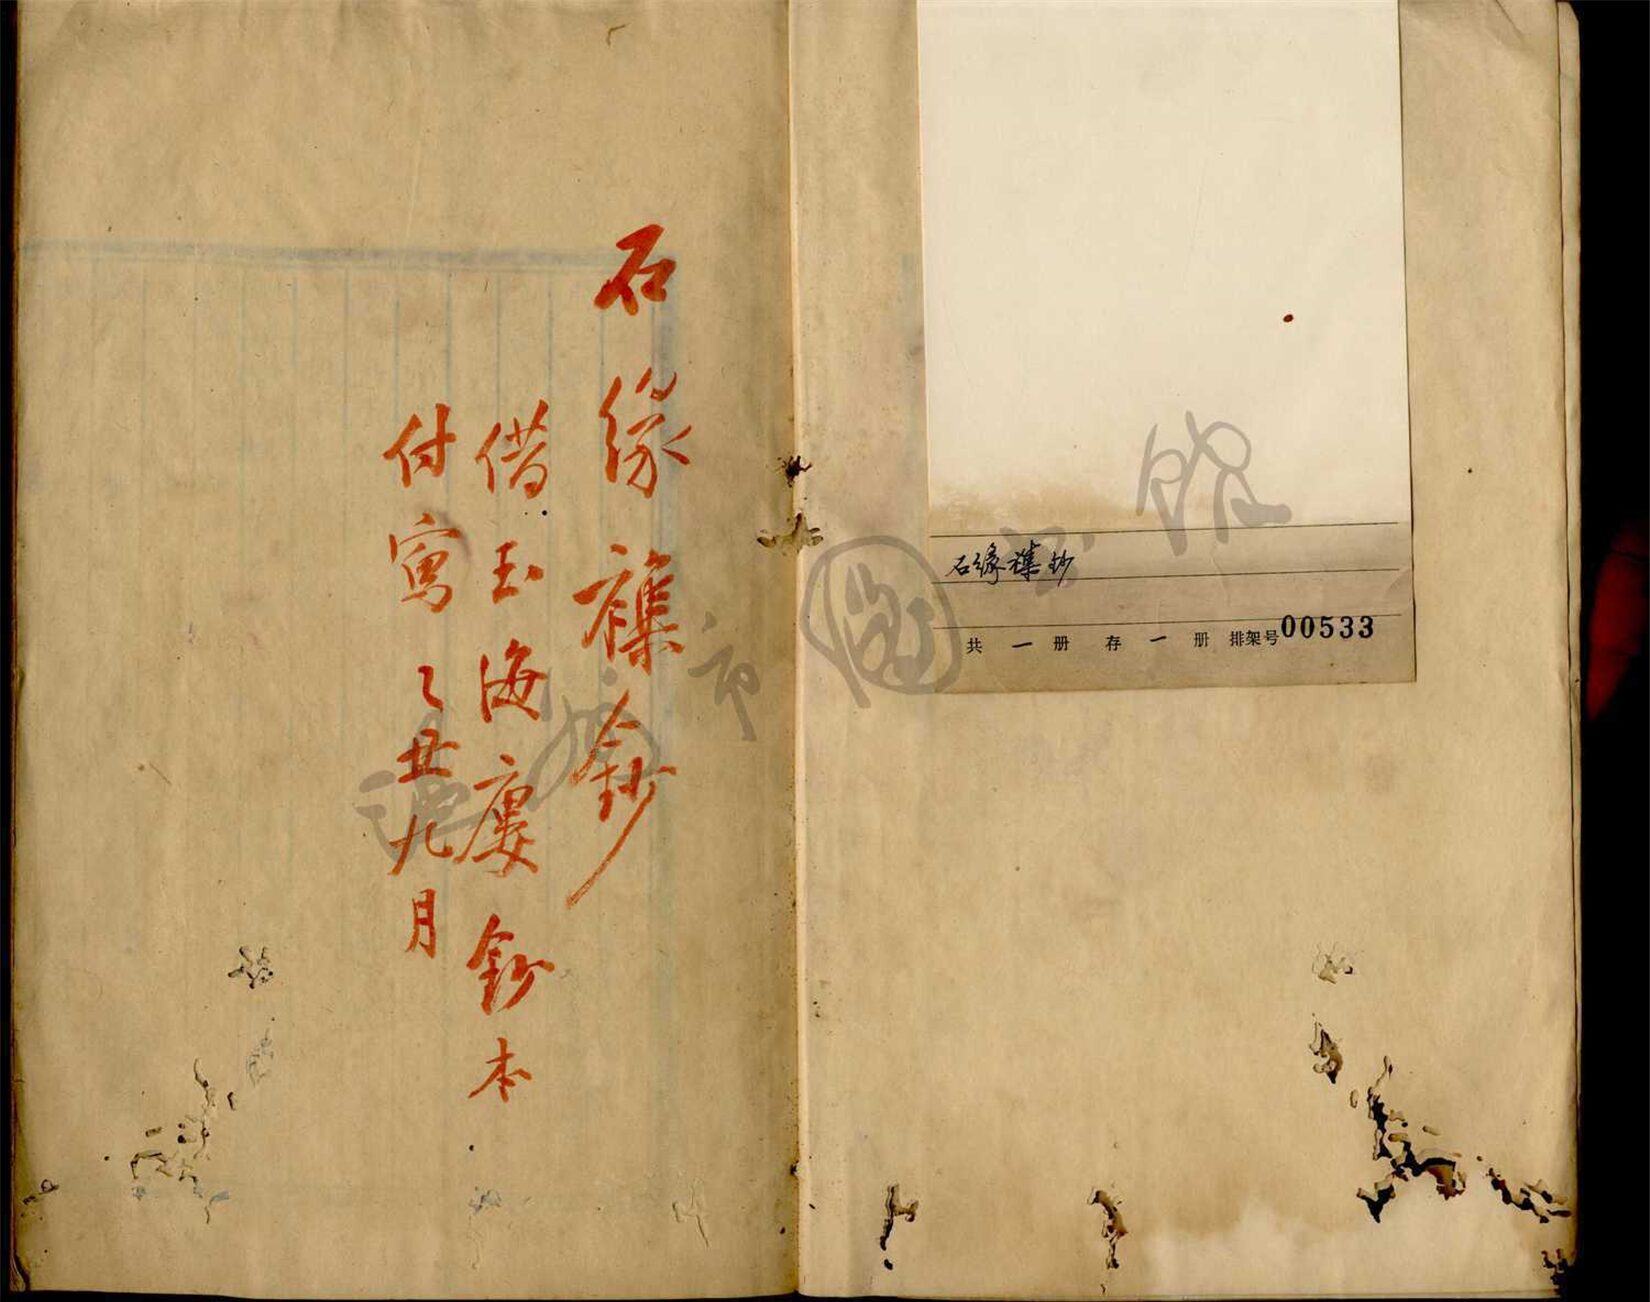 石缘襍鈔
共一册存一册排架号00533
石緣襍鈔
借玉海廔鈔本
付寫乙丑九月
市圖